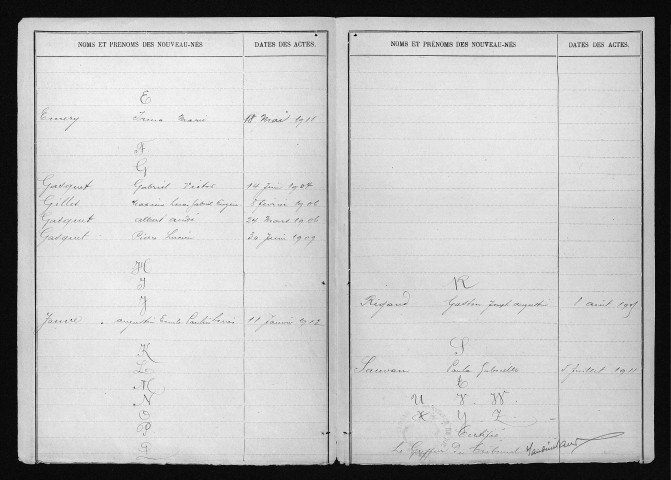 NOMS ET PRÉNOMS DES NOUVEAU-NÉS DATES DES ACTES.
E
Emery Irma Marie 18 Mai 1911
A
G
Gasquet Gabriel Victor 14 Juin 1904
Gilles 1906
Gasquet Albert André 24 Mars 1906
Gasquet Pierre Lucien 30 Juin 1909
H
I
J
Jauve Augustin 11 Janvier 1912
K
L
M
N
O
P
Q
NOMS ET PRÉNOMS DES NOUVEAU-NÉS DATES DES ACTES.
R
Rigaud Gaston Joseph Augustin Août
S
Sauvan Paula Gabrielle 5 Juillet 1911
t
U V W
X Y Z
Certifié
Le Greffier du Tribunal